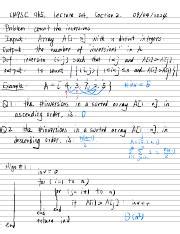 CMPSC 465, Lecture 04, Section 2. 08/04/2024
Problem: Count the inversions
Input: Array A[1 .. n] with n distinct integers
Output: The number of "inversions" in A
Def: inversion (i,j) such that i<j and A[i] > A[j]
output: to count |{(i,j) | 1≤i<j≤n and A[i] > A[j]}|
Example: A = [4, 3, 7, 2, 5] inv = 5
Q1: The #inversions in a sorted array A[1 .. n], in
ascending order, is 0
Q2: the #inversions in a sorted array A[1 .. n], in
descending order, is n(n-1)/2
Alg #1: inv = 0
for (i=1 to n)
for (j=i+1 to n)
if A[i] > A[j]
inv++
end
end
return inv
end